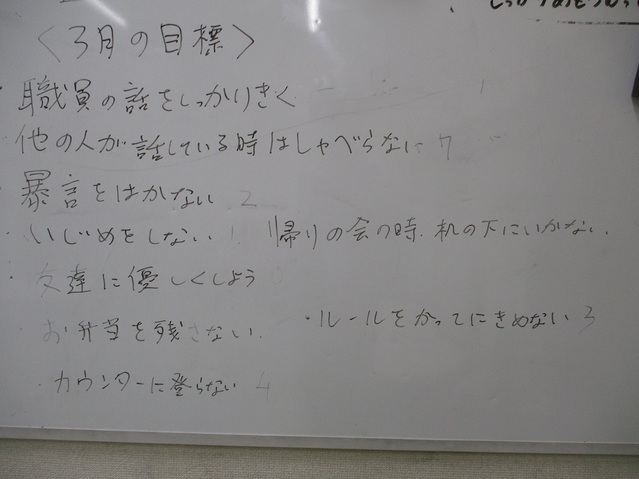 <3月の目標>
職員の話をしっかりきく
他の人が話している時はしゃべらない 7
暴言をはかない 2
・いじめをしない 1 帰りの会の時、机の下にいかない
・友達に優しくしよう
お弁当を残さない
・ルールをかってにきめない 3
・カウンターに登らない 4